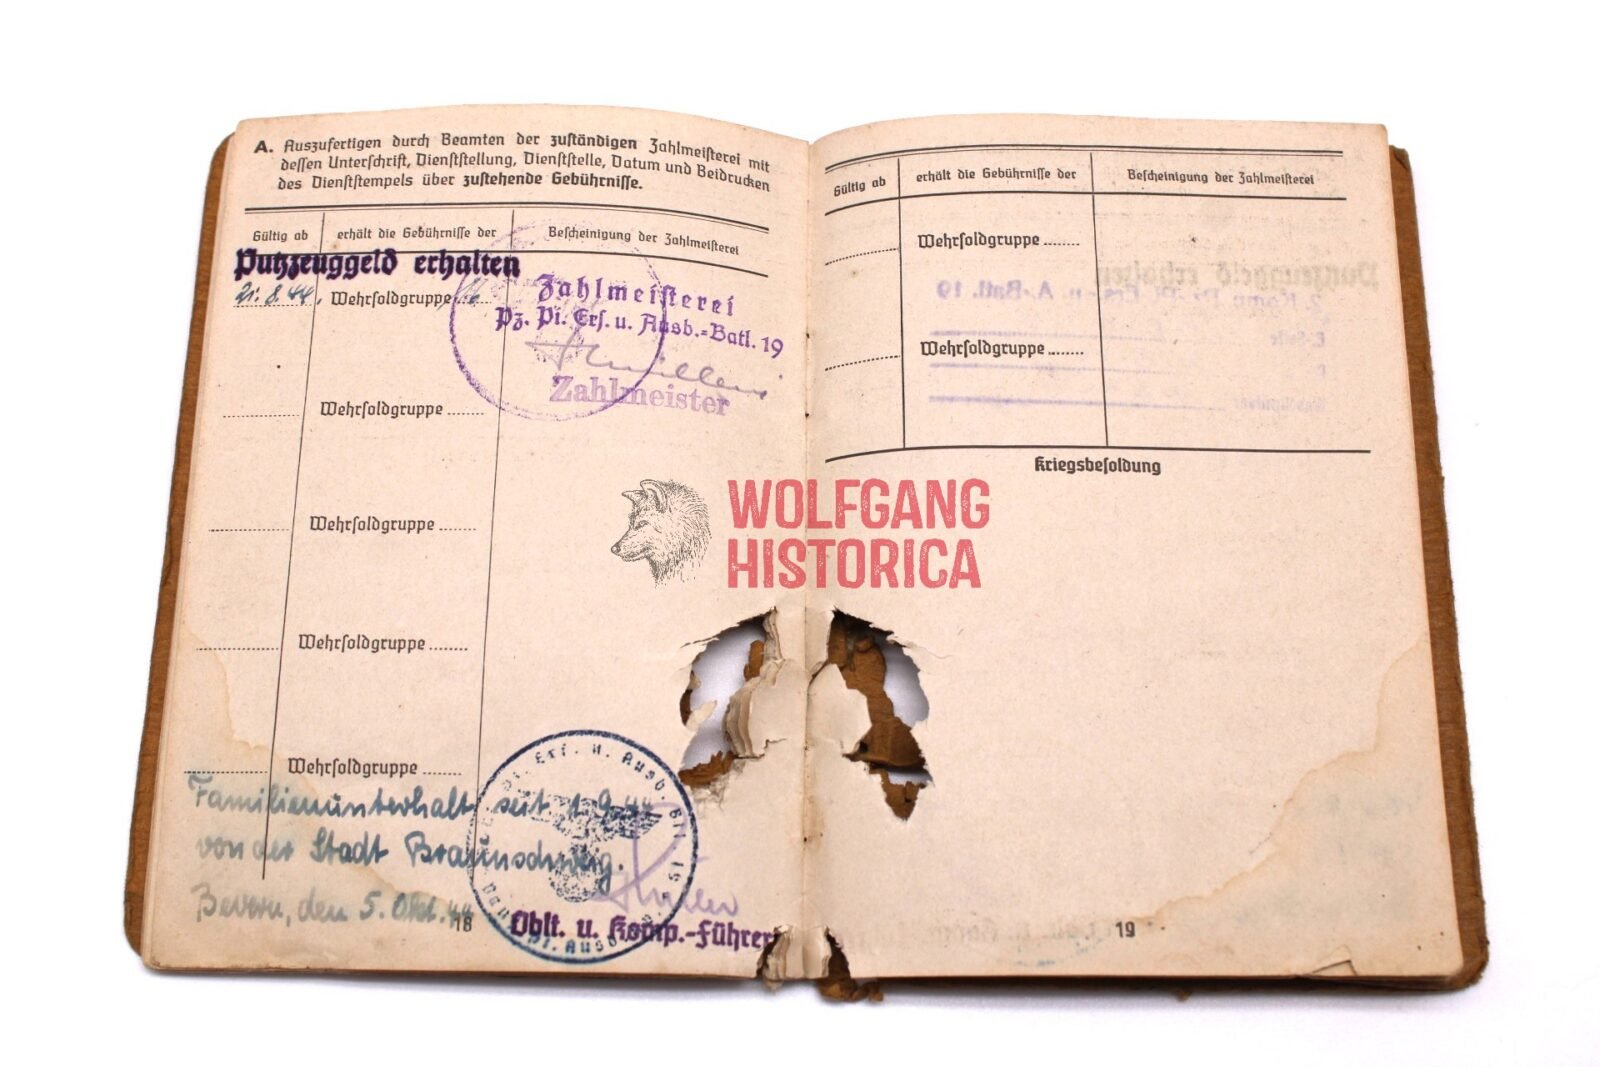 A. Auszufertigen durch Beamten der zuständigen Zahlmeisterei mit
dessen Unterschrift, Dienststellung, Dienststelle, Datum und Beidrucken
des Dienststempels über zustehende Gebührnisse.
Gültig ab erhält die Gebührnisse der Bescheinigung der Zahlmeisterei
Putzzeuggeld erhalten
21.8.44. Wehrsoldgruppe 16
Zahlmeisterei
Pz. Pi. Ers. u. Ausb.-Batl. 19
Zahlmeister
Wehrsoldgruppe
Wehrsoldgruppe
Wehrsoldgruppe
Wehrsoldgruppe
Familienunterhalt seit 1.9.44
von der Stadt Braunschweig.
Bevern, den 5. Okt. 44
Pi. Ers. u. Ausb. Btl. 19
Oblt. u. Komp.-Führer
18
Gültig ab erhält die Gebührnisse der Bescheinigung der Zahlmeisterei
Wehrsoldgruppe
Wehrsoldgruppe
Kriegsbesoldung
19
WOLFGANG
HISTORICA